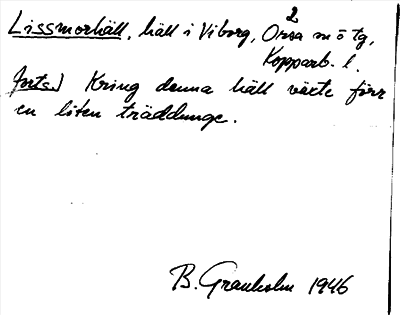 Lissmorhäll, häll i Viborg, Orsa m ö tg,
2
Kopparb. l.
forts.) Kring denna häll växte förr
en liten träddunge.
B. Granholm 1946